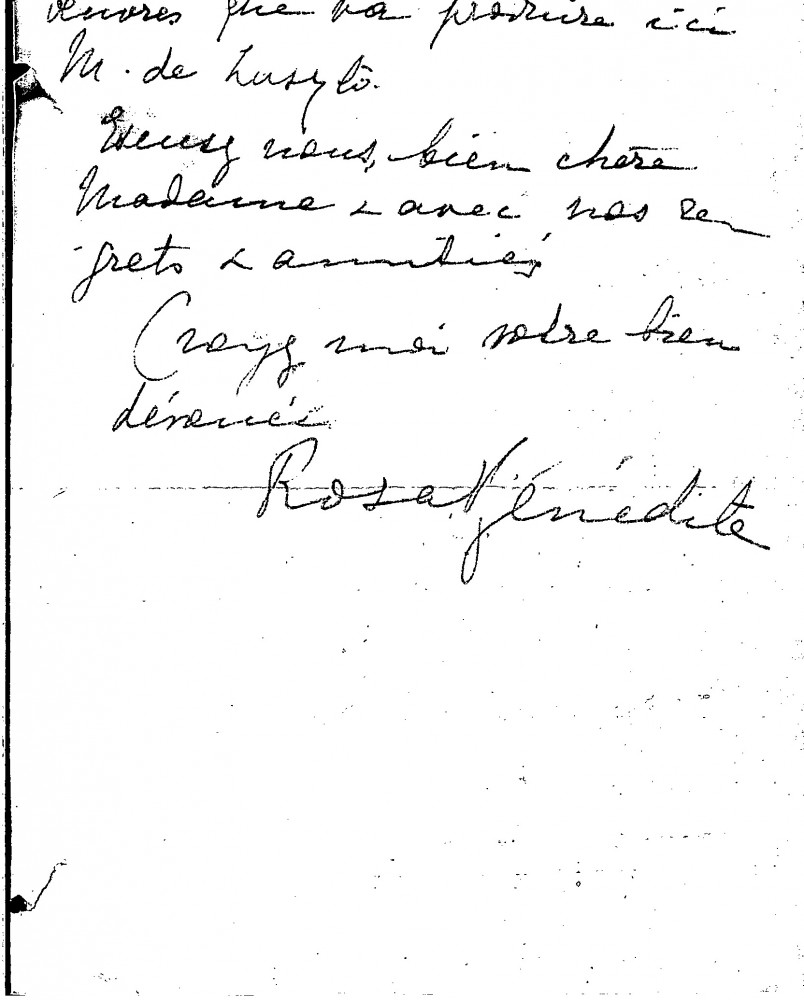 œuvres que va produire ici
M. de Laszlò.
Excusez nous, bien chère
Madame & avec nos re
grets & amitiés
Croyez moi votre bien
dévouée
Rosa Bénédite